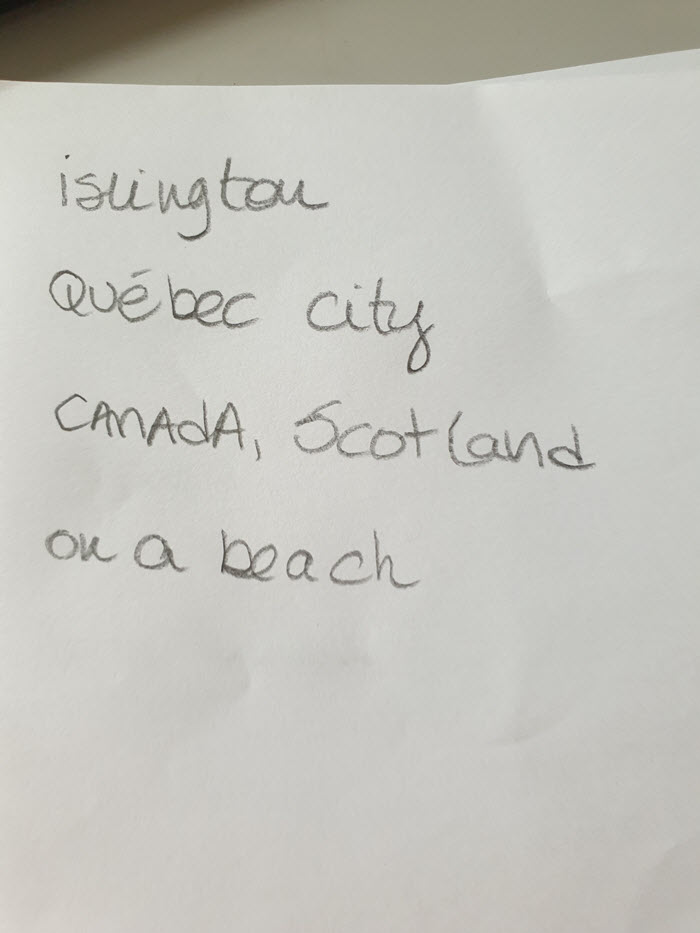 islington
Québec city
CANAdA, Scotland
on a beach